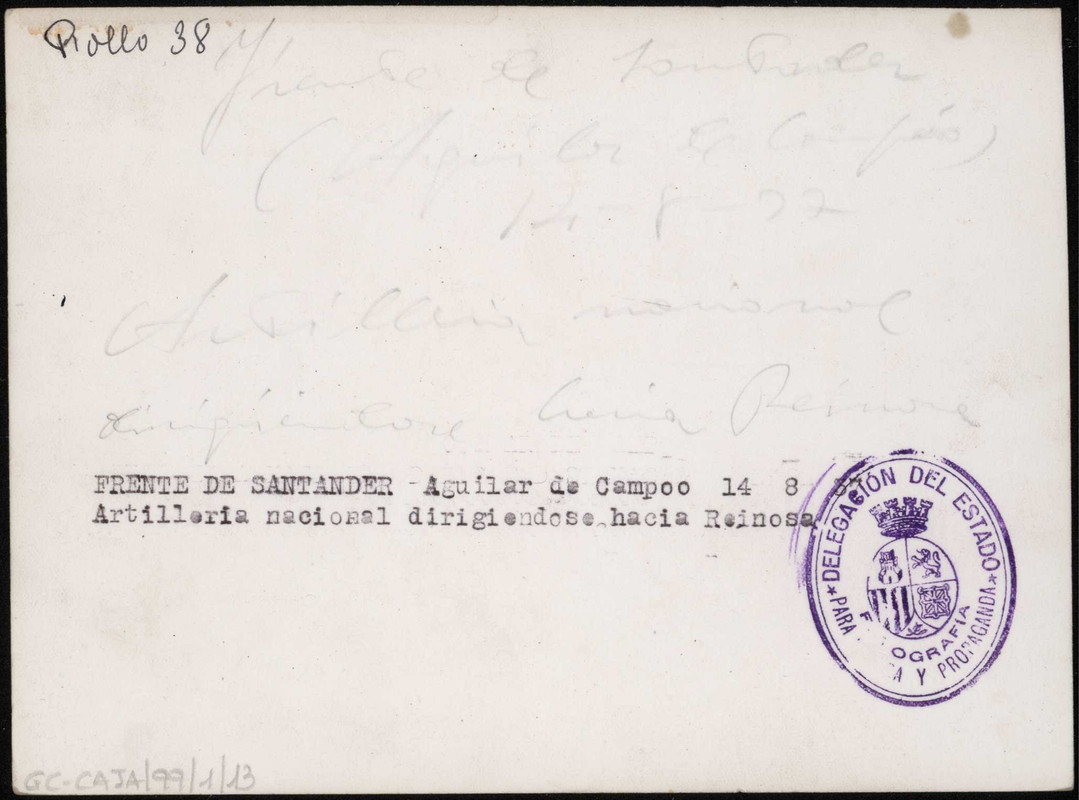 Rollo 38
Frente de Santander
(Aguilar de Campóo)
14-8-37
Artilleria nacional
dirigiéndose hacia Reinosa
FRENTE DE SANTANDER Aguilar de Campoo 14 8 37
Artilleria nacional dirigiendose hacia Reinosa
*DELEGACIÓN DEL ESTADO*
PARA A Y PROPAGANDA
F OGRAFÍA
GC-CAJA/99/1/13